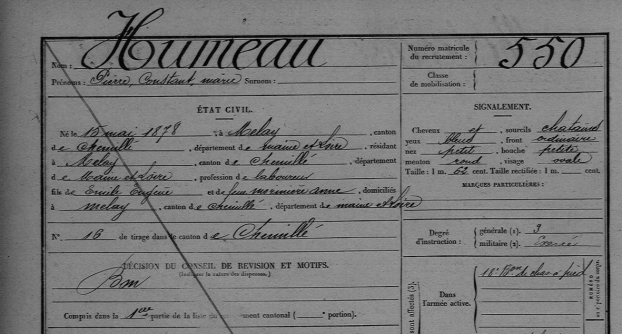 Nom : Humeau
Prénoms : Pierre, Constant, marie Surnoms :
Numéro matricule du recrutement : 550
Classe de mobilisation :
ÉTAT CIVIL.
Né le 15 mai 1878, à Melay, canton
de Chemillé, département de maine et Loire, résidant
à Melay, canton de Chemillé, département
de Maine et Loire, profession de laboureur
fils de Emile Eugène et de feue anne, domiciliés
à melay, canton de Chemillé, département de maine et Loire
N° 16 de tirage dans le canton de Chemillé
SIGNALEMENT.
Cheveux et, sourcils chatains
yeux bleus, front ordinaire
nez petit, bouche petite
menton rond, visage ovale
Taille : 1 m. 62 cent. Taille rectifiée : 1 m. cent.
MARQUES PARTICULIÈRES :
Degré d'instruction : générale (1). 3
militaire (2). Exercé
DÉCISION DU CONSEIL DE REVISION ET MOTIFS.
(Indiquer la nature des dispenses.)
Bon
Compris dans la 1ère partie de la liste du recrutement cantonal ( portion).
Dans l'armée active.
18e Bon de chas à pied